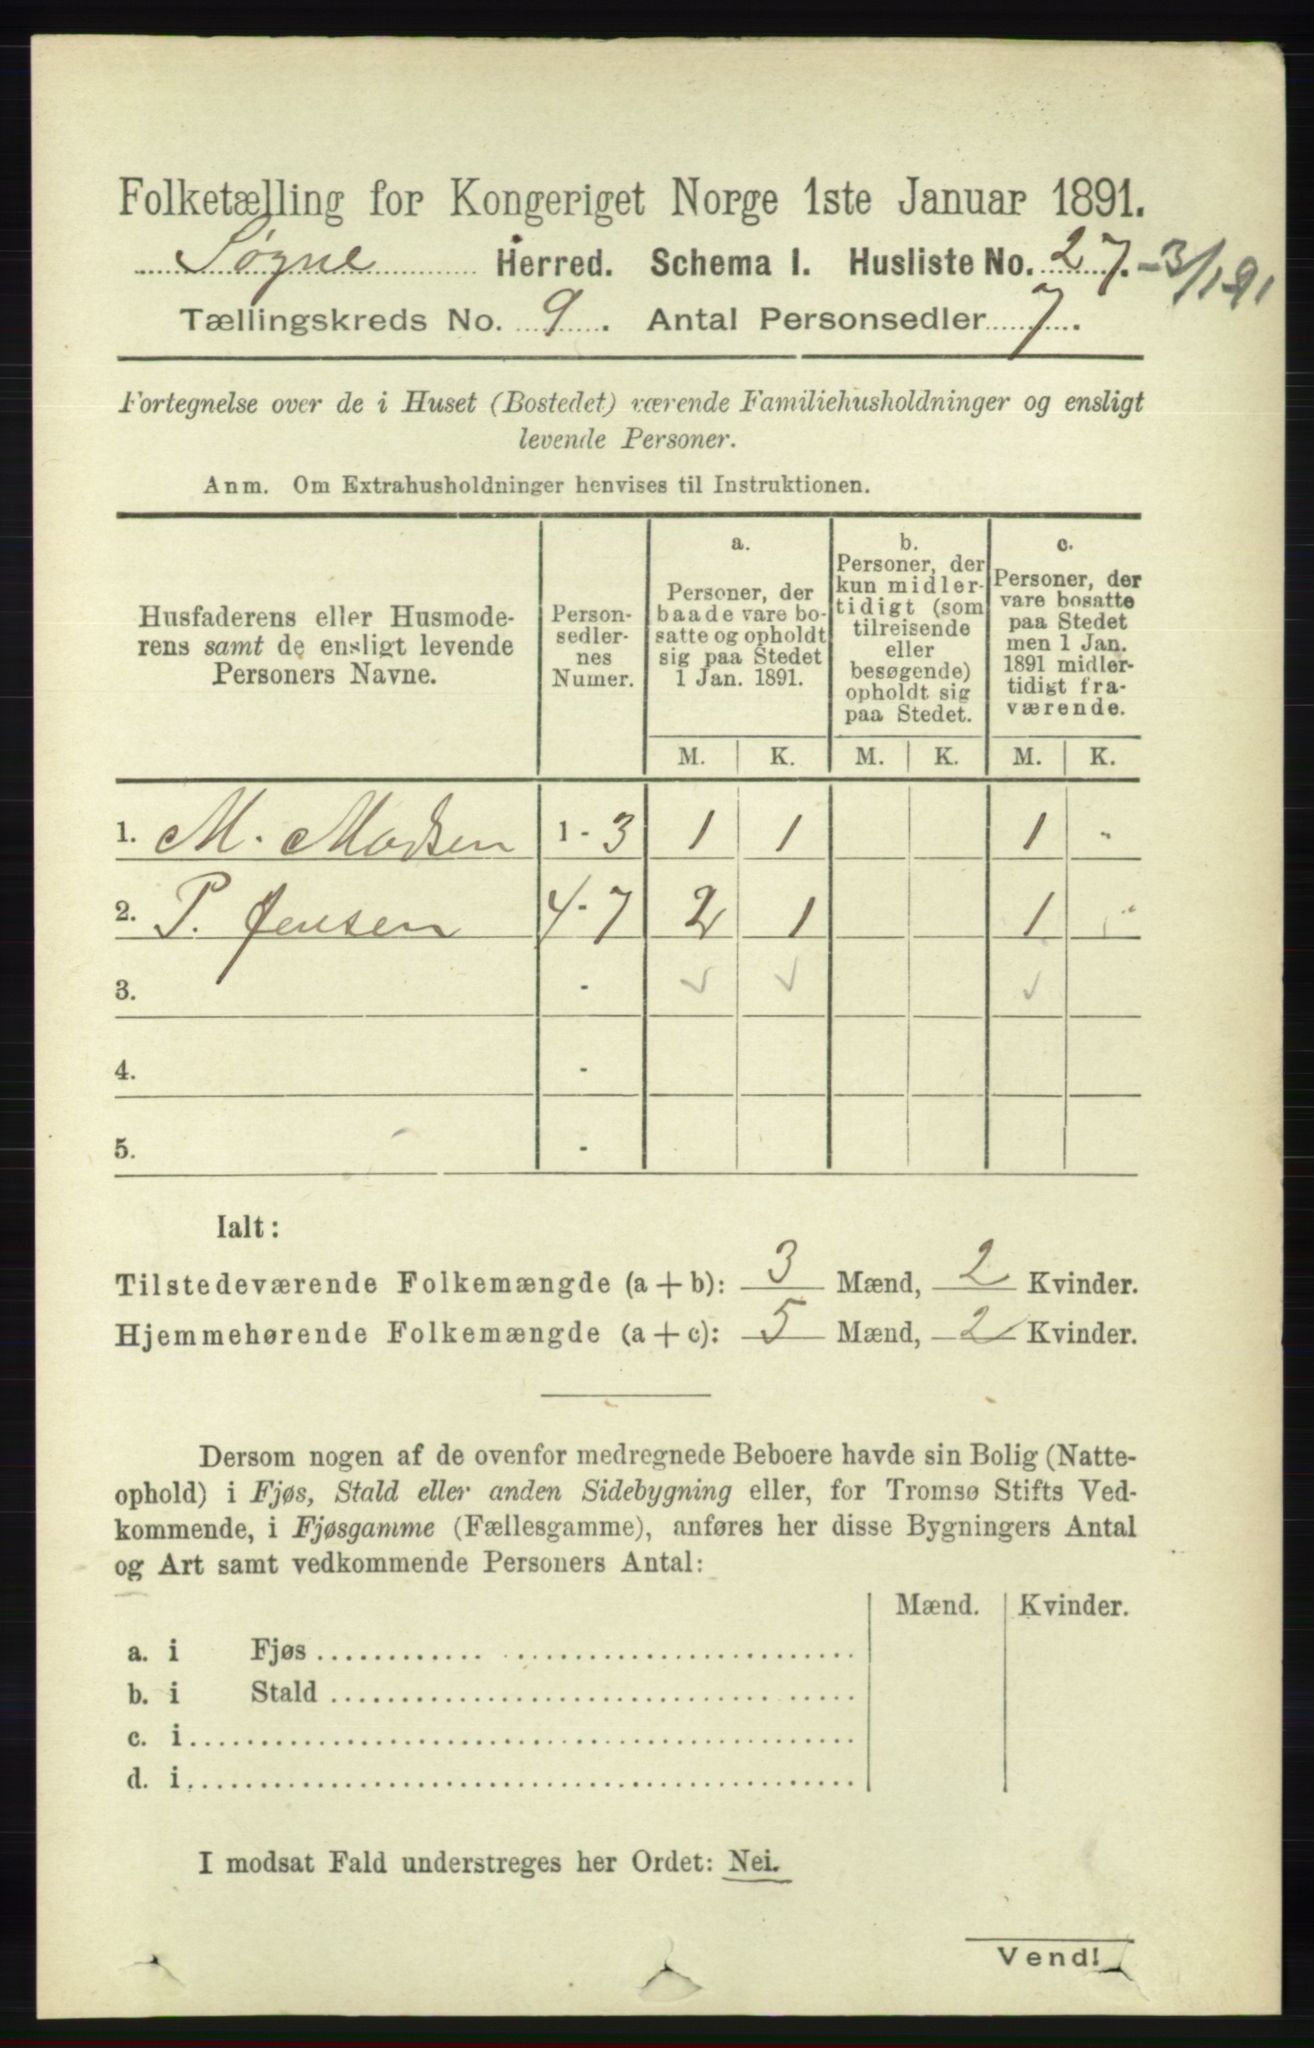 Folketælling for Kongeriget Norge 1ste Januar 1891.
Søgne Herred. Schema I. Husliste No. 27. - 3/1 91
Tællingskreds No. 9. Antal Personsedler 7.
Fortegnelse over de i Huset (Bostedet) værende Familiehusholdninger og ensligt
levende Personer.
Anm. Om Extrahusholdninger henvises til Instruktionen.
Husfaderens eller Husmode-
rens samt de ensligt levende
Personers Navne.
Person-
sedler-
nes
Numer.
a.
Personer, der
baade vare bo-
satte og opholdt
sig paa Stedet
1 Jan. 1891.
b.
Personer, der
kun midler-
tidigt (som
tilreisende
eller
besøgende)
opholdt sig
paa Stedet.
c.
Personer, der
vare bosatte
paa Stedet
men 1 Jan.
1891 midler-
tidigt fra-
værende.
M. K. M. K. M. K.
1. M. Madsen 1 - 3 1 1 1 -
2. P. Jensen 4 - 7 2 1 1 -
3. - ✓ ✓ ✓
4. -
5. -
Ialt:
Tilstedeværende Folkemængde (a + b): 3 Mænd, 2 Kvinder.
Hjemmehørende Folkemængde (a + c): 5 Mænd, 2 Kvinder.
Dersom nogen af de ovenfor medregnede Beboere havde sin Bolig (Natte-
ophold) i Fjøs, Stald eller anden Sidebygning eller, for Tromsø Stifts Ved-
kommende, i Fjøsgamme (Fællesgamme), anføres her disse Bygningers Antal
og Art samt vedkommende Personers Antal:
Mænd. Kvinder.
a. i Fjøs
b. i Stald
c. i
d. i
I modsat Fald understreges her Ordet: Nei.
Vend!